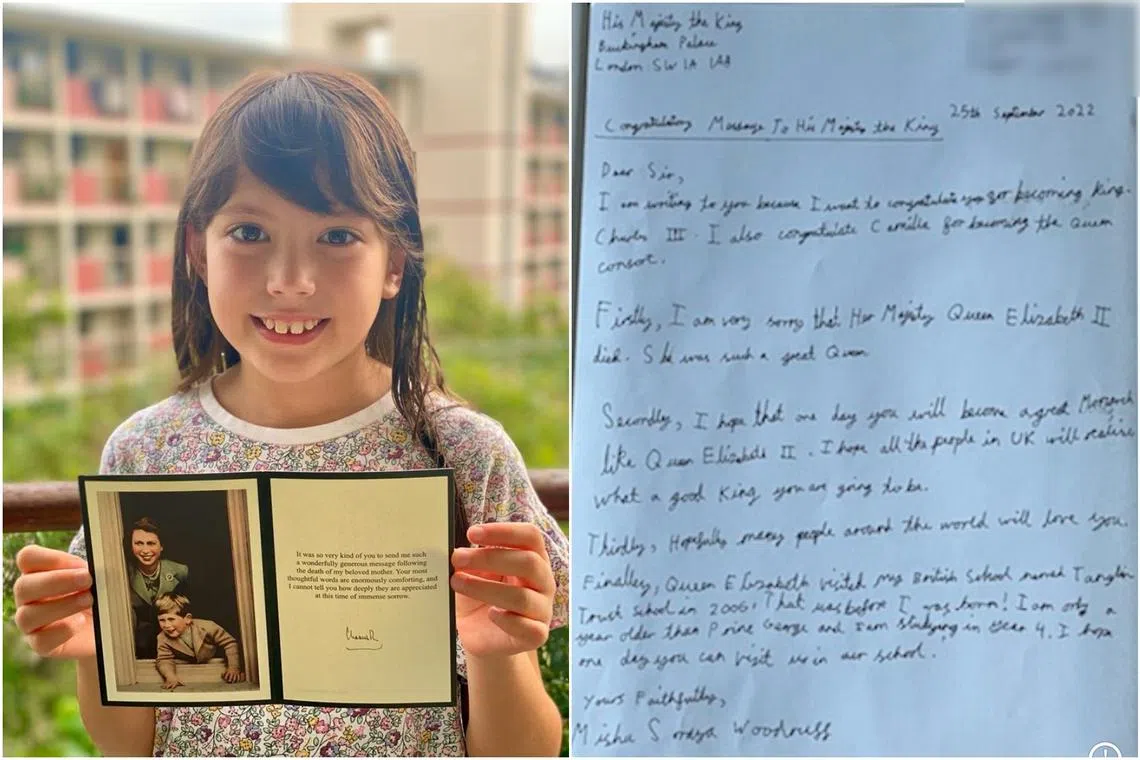 It was so very kind of you to send me such
a wonderfully generous message following
the death of my beloved mother. Your most
thoughtful words are enormously comforting, and
I cannot tell you how deeply they are appreciated
at this time of immense sorrow.
Charles R
His Majesty the King
Buckingham Palace
London SW 1A 1AA
25th September 2022
Congratulations Message To His Majesty the King
Dear Sir,
I am writing to you because I want to congratulate you for becoming King
Charles III. I also congratulate Camilla for becoming the Queen
consort.
Firstly, I am very sorry that Her Majesty Queen Elizabeth II
died. She was such a great Queen
Secondly, I hope that one day you will become a great Monarch
like Queen Elizabeth II. I hope all the people in UK will realise
what a good King you are going to be.
Thirdly, Hopefully many people around the world will love you.
Finalley, Queen Elizabeth visited my British School named Tanglin
Trust School in 2006. That was before I was born! I am only a
year older than Prince George and I am studying in Year 4. I hope
one day you can visit us in our school.
Yours Faithfully,
Misha Woodruff